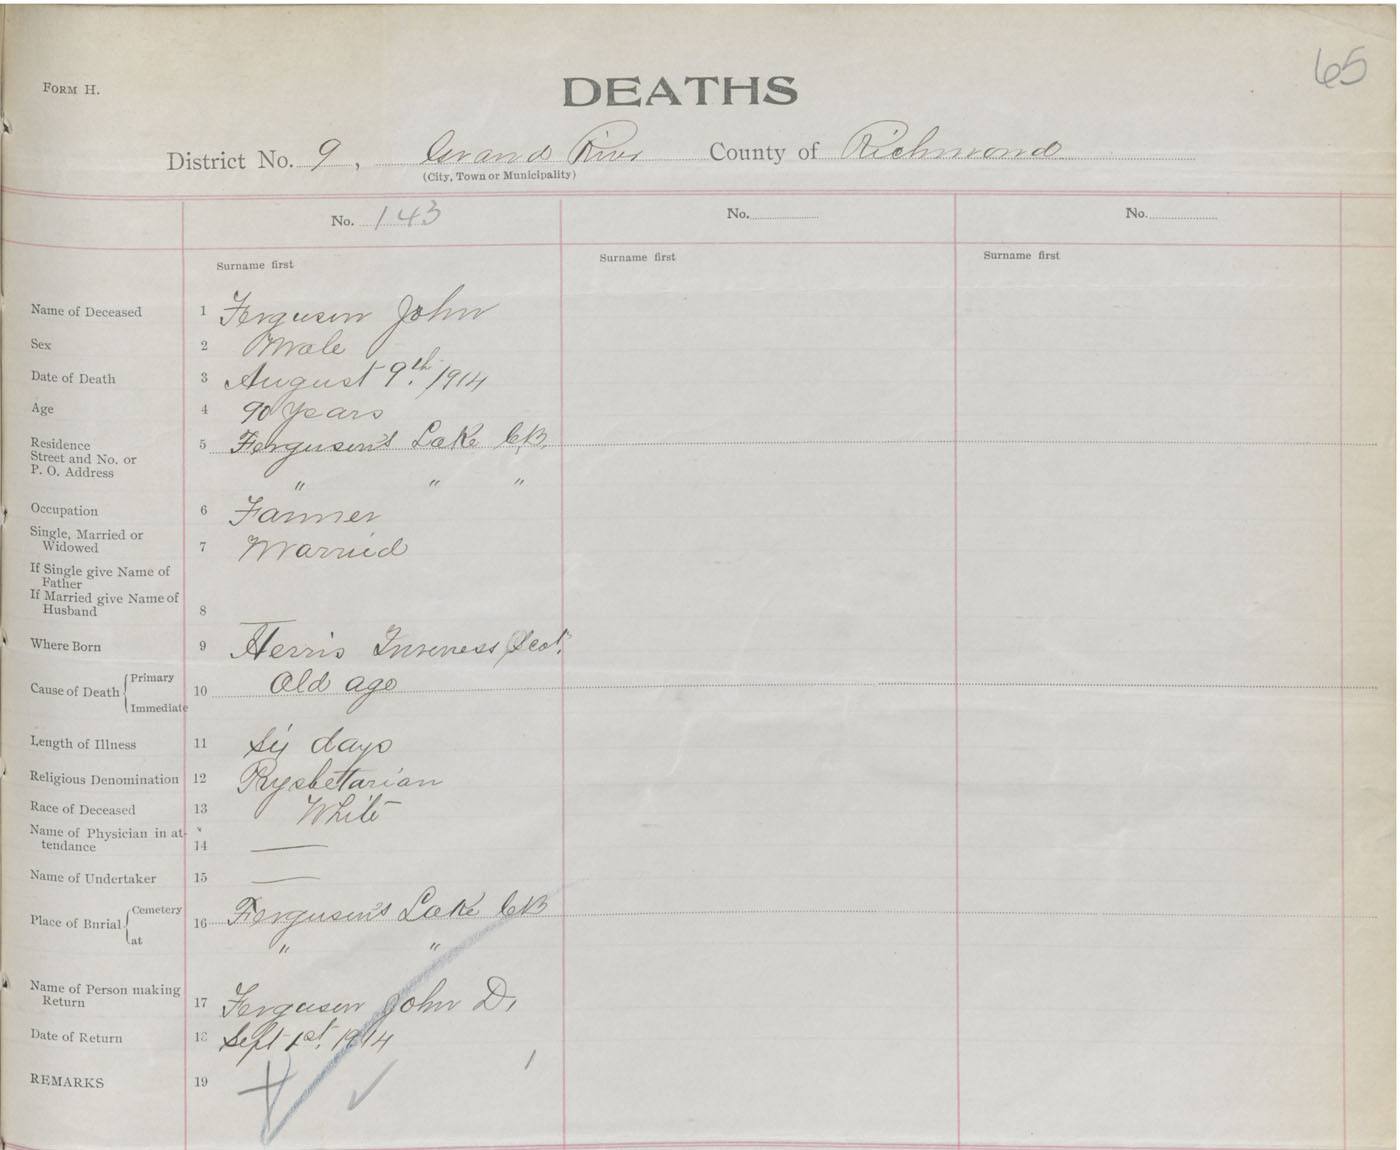 65
FORM H.
DEATHS
District No. 9, Grand River County of Richmond
(City, Town or Municipality)
No. 143 No. No.
Surname first Surname first Surname first
Name of Deceased 1 Ferguson John
Sex 2 Male
Date of Death 3 August 9th. 1914
Age 4 90 years
Residence
Street and No. or
P. O. Address 5 Ferguson's Lake C.B.
" " "
Occupation 6 Farmer
Single, Married or
Widowed 7 Married
If Single give Name of
Father
If Married give Name of
Husband 8
Where Born 9 Herris Inverness Scot.
Cause of Death { Primary
Immediate 10 Old age
Length of Illness 11 Six days
Religious Denomination 12 Prysbetarian
Race of Deceased 13 White
Name of Physician in at-
tendance 14 —
Name of Undertaker 15 —
Place of Burial { Cemetery
at 16 Ferguson's Lake CB
" "
Name of Person making
Return 17 Ferguson John D.
Date of Return 18 Sept 1st. 1914
REMARKS 19